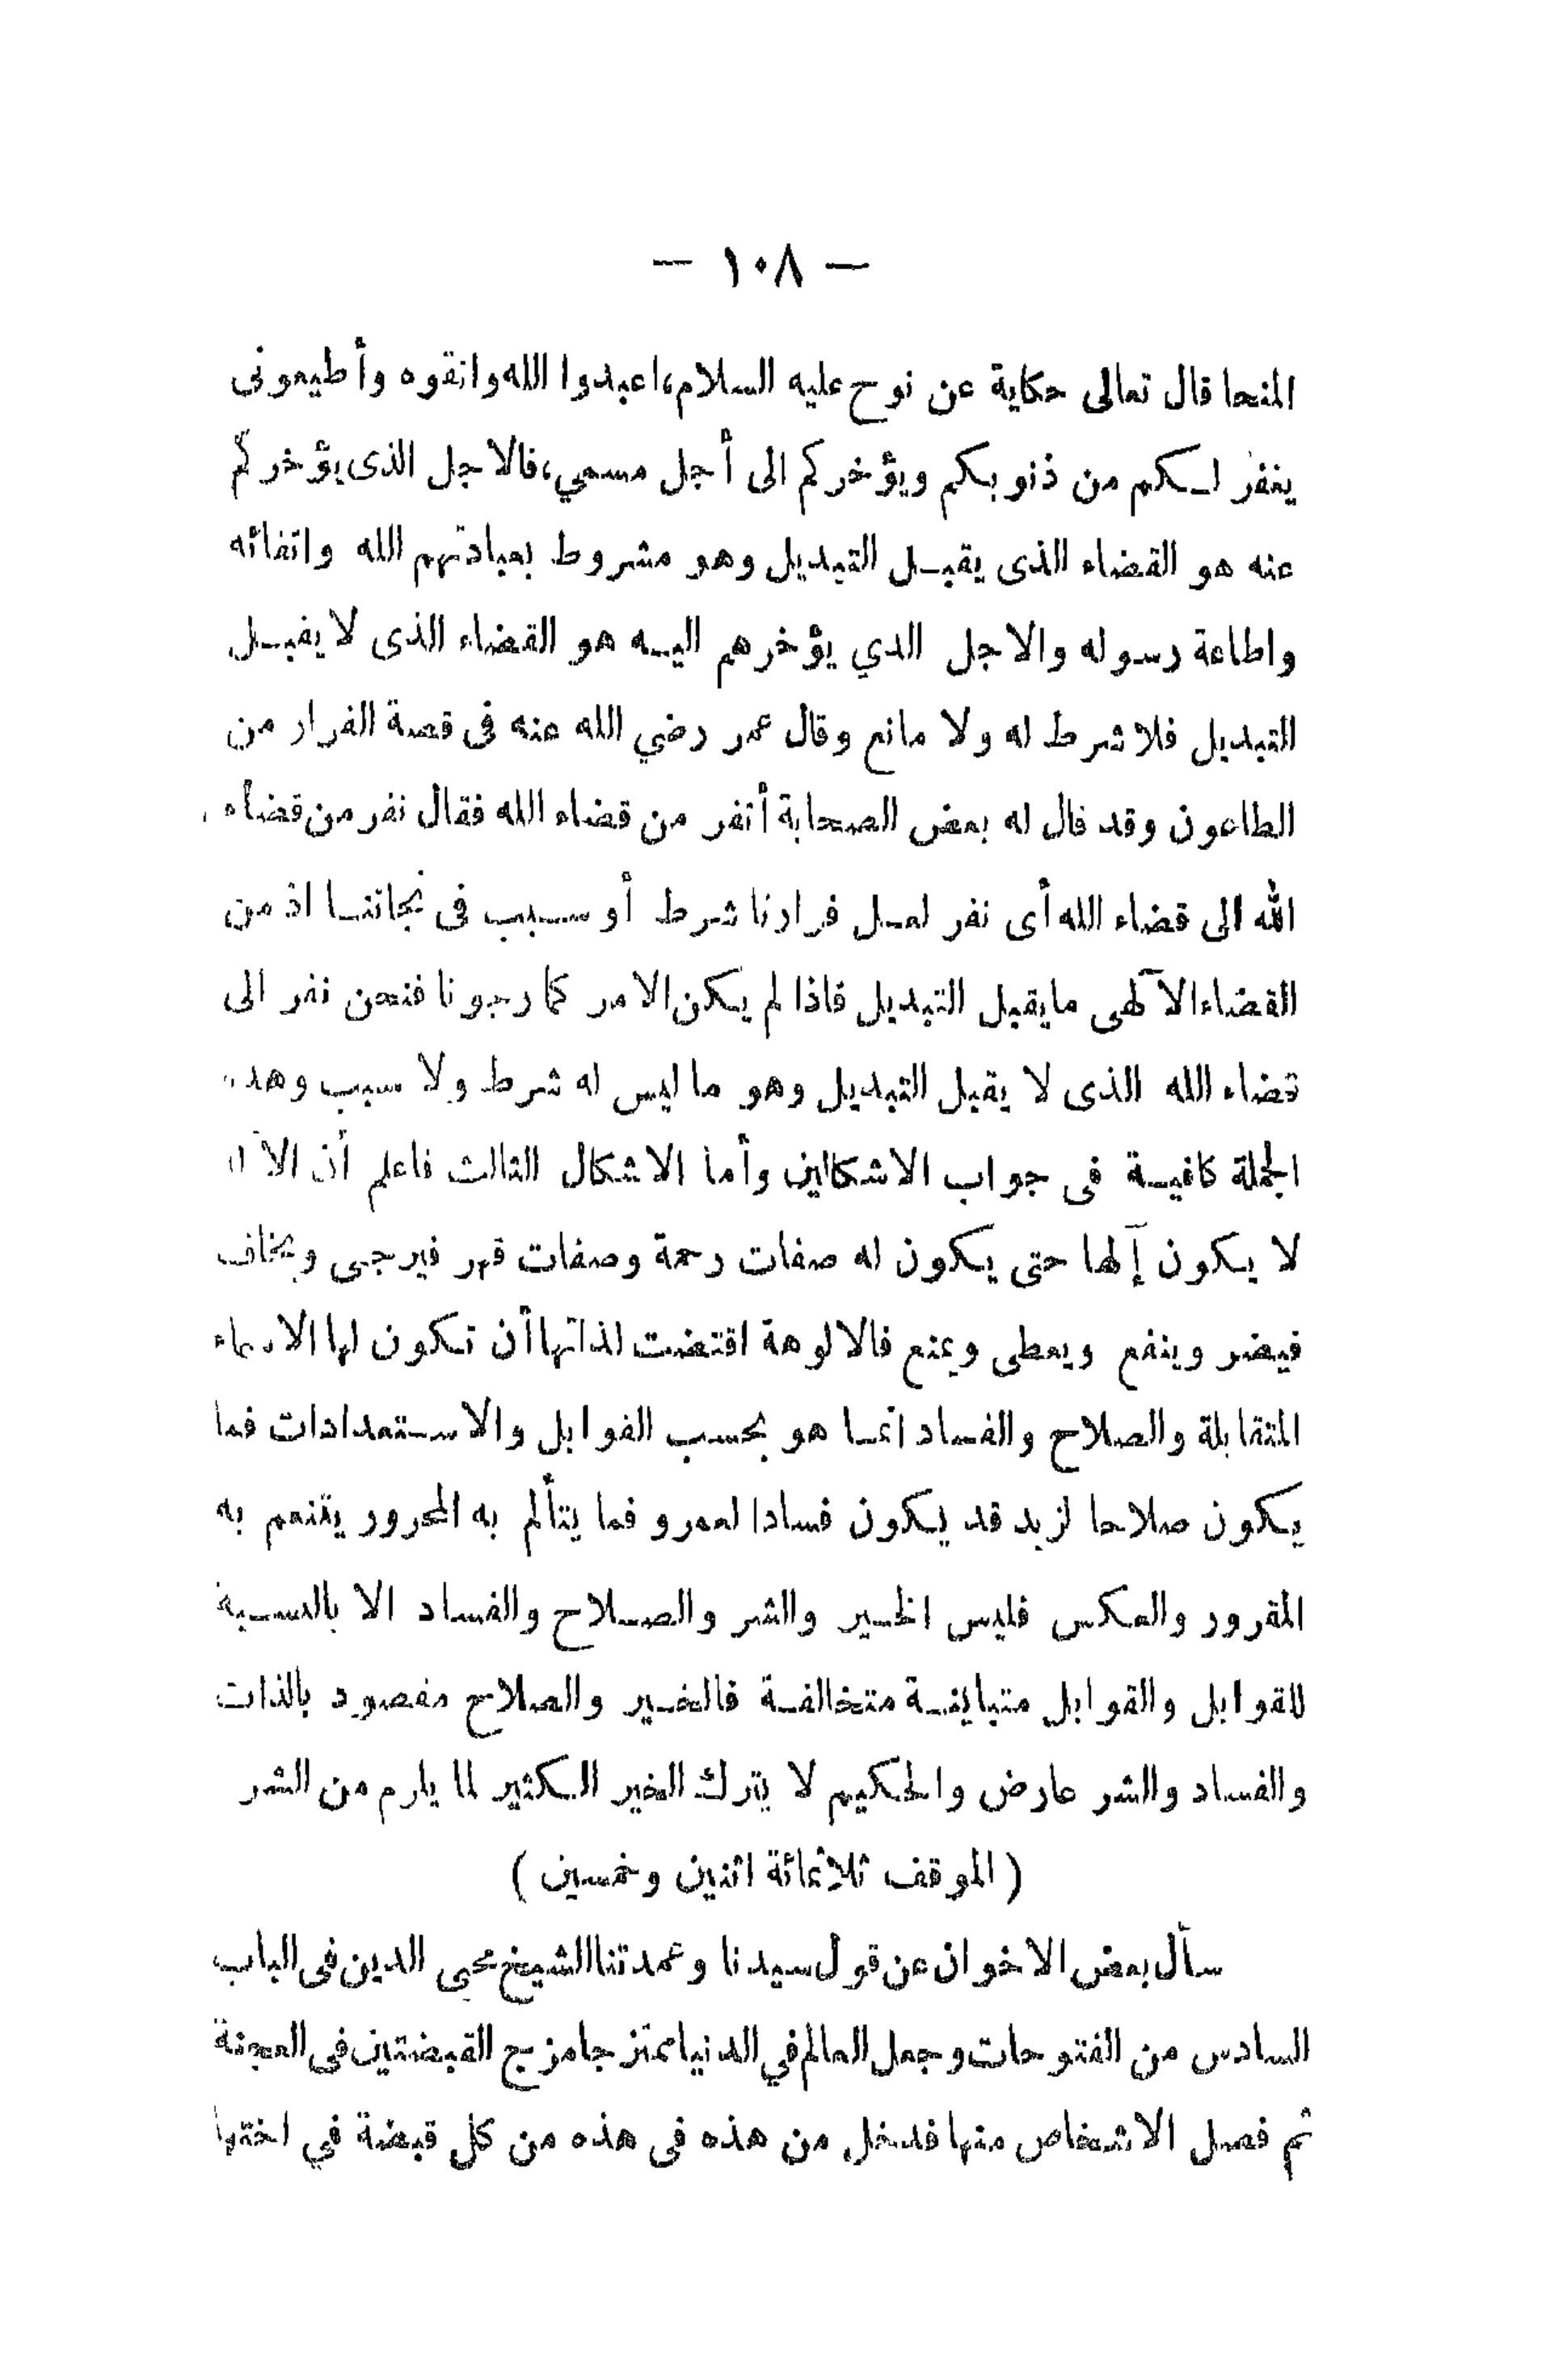 — ١٠٨ —
المنحا قال تعالى حكاية عن نوح عليه السلام،اعبدوا الله واتقوه وأطيعونى
يغفر لـكم من ذنوبكم ويؤخركم الى أجل مسمي،فالاجل الذى يؤخركم
عنه هو القضاء الذى يقبـل التبديل وهو مشروط بعبادتهم الله واتقائه
واطاعة رسوله والاجل الدي يؤخرهم اليـه هو القضاء الذى لا يقبـل
التبديل فلا شرط له ولا مانع وقال عمر رضي الله عنه فى قصة الفرار من
الطاعون وقد قال له بعض الصحابة أتفر من قضاء الله فقال نفر من قضاء
الله الى قضاء الله أى نفر لعـل فرارنا شرط أو سـبب فى نجاتنـا اذ من
القضاء الآلهى مايقبل التبديل فاذا لم يـكن الامر كما رجونا فنحن نفر الى
قضاء الله الذى لا يقبل التبديل وهو ما ليس له شرط ولا سبب وهذه
الجملة كافيـة فى جواب الاشكالين وأما الاشكال الثالث فاعلم أن
لا يـكون إلٓها حتى يـكون له صفات رحمة وصفات قهر فيرجى ويخاف
فيضر وينفع ويعطى ويمنع فالالوهة اقتضت لذاتها أن تـكون لها الاسماء
المتقابلة والصلاح والفساد انمـا هو بحسب القوابل والاسـتعدادات فما
يـكون صلاحا لزيد قد يـكون فسادا لعمرو فما يتألم به المحرور يتنعم به
المقرور والعـكس فليس الخـير والشر والصـلاح والفساد الا بالنسـبة
للقوابل والقوابل متباينـة متخالفـة فالخـير والصلاح مقصود بالذات
والفساد والشر عارض والحـكيم لا يترك الخير الـكثير لما يلزم من الشر
( الموقف ثلاثمائة اثنين وخمسين )
سأل بعض الاخوان عن قول سيدنا وعمدتنا الشيخ محيى الدين فى الباب
السادس من الفتوحات وجعل العالم في الدنيا ممتزجا مزج القبضتين فى العجنة
ثم فصل الاشخاص منها فدخل من هذه فى هذه من كل قبضة في اختها